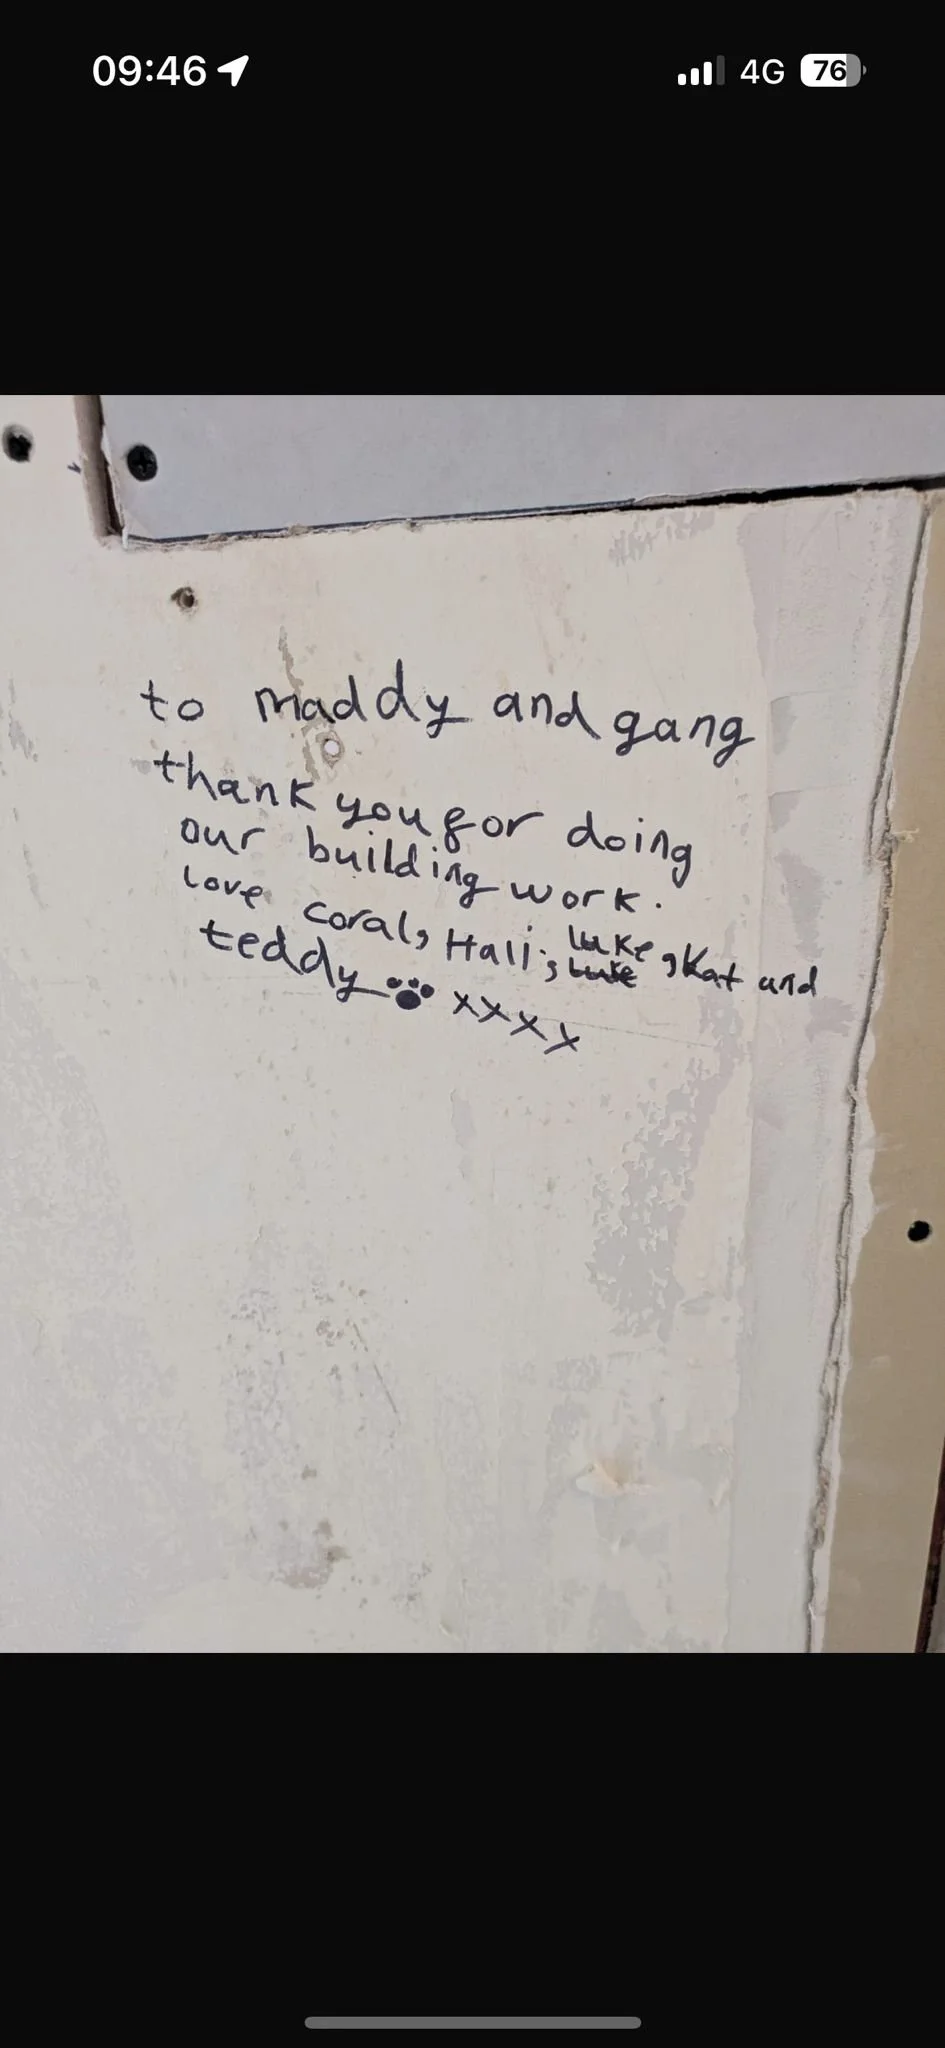 09:46
4G
76
to maddy and gang
thank you for doing
our building work.
love coral, Hali, luke, Kat and
luke
teddy xxxx